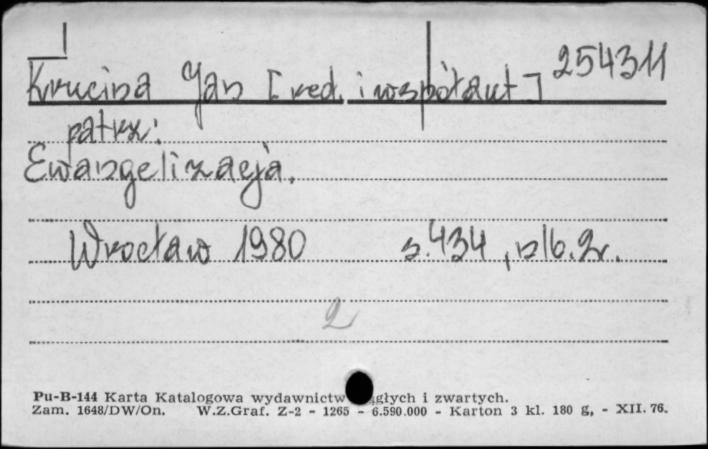 254311
Krucina Jan [red. i współaut]
patrz:
Ewangelizacja.
Wrocław 1980 s. 434, nlb. 2.
2
Pu-B-144 Karta Katalogowa wydawnictw głych i zwartych.
Zam. 1648/DW/On. W.Z.Graf. Z-2 - 1265 - 6.590.000 - Karton 3 kl. 180 g, - XII. 76.